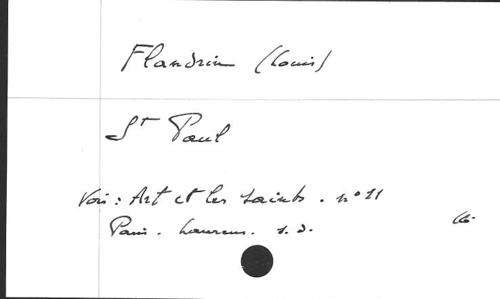 Flandrin (Louis)
St Paul
Voir : Art et les saints . n° 11
Paris . Laurens . s. d.